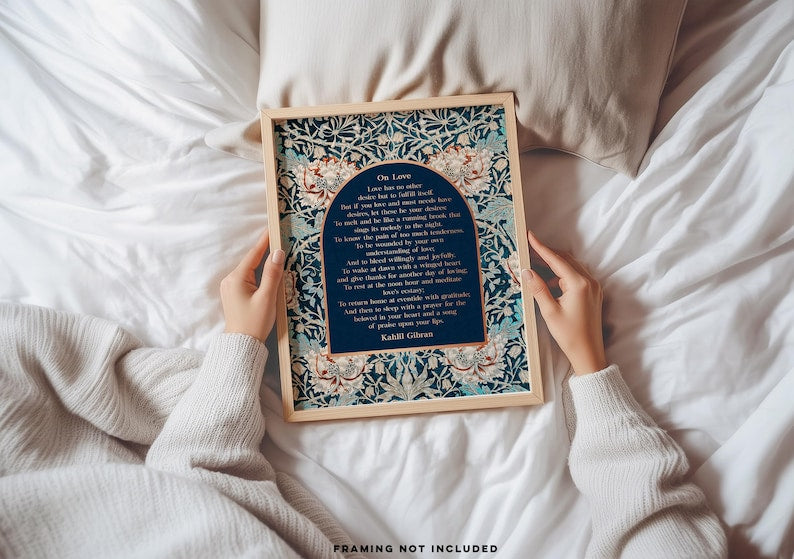 On Love
Love has no other
desire but to fulfill itself.
But if you love and must needs have
desires, let these be your desires:
To melt and be like a running brook that
sings its melody to the night.
To know the pain of too much tenderness.
To be wounded by your own
understanding of love;
And to bleed willingly and joyfully.
To wake at dawn with a winged heart
and give thanks for another day of loving;
To rest at the noon hour and meditate
love's ecstasy;
To return home at eventide with gratitude;
And then to sleep with a prayer for the
beloved in your heart and a song
of praise upon your lips.
Kahlil Gibran
FRAMING NOT INCLUDED